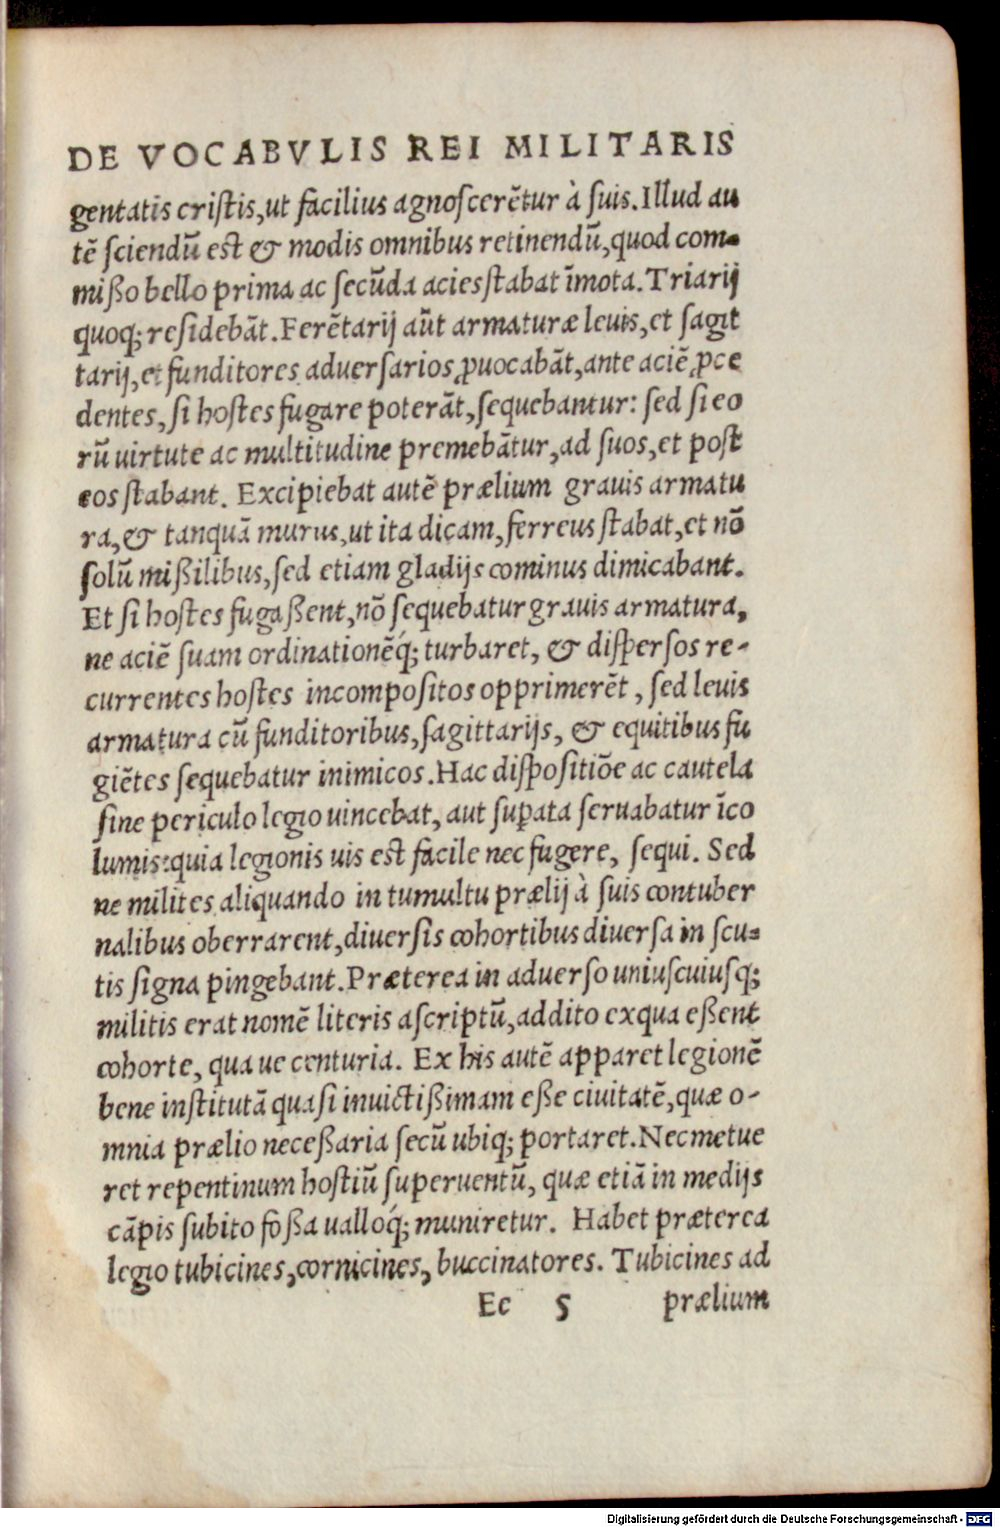 DE VOCABVLIS REI MILITARIS
gentatis cristis, ut facilius agnoscerẽtur à suis. Illud au
tẽ sciendũ est & modis omnibus retinendũ, quod com-
misso bello prima ac secũda acies stabat ĩmota. Triarij
quoq; residebãt. Ferẽtarij aũt armaturæ leuis, et sagit
tarij, et funditores aduersarios ꝓuocabãt, ante aciẽ ꝓce
dentes, si hostes fugare poterãt, sequebantur: sed si eo
rũ uirtute ac multitudine premebãtur, ad suos, et post
eos stabant. Excipiebat autẽ prælium grauis armatu
ra, & tanquã murus, ut ita dicam, ferreus stabat, et nõ
solũ missilibus, sed etiam gladijs cominus dimicabant.
Et si hostes fugassent, nõ sequebatur grauis armatura,
ne aciẽ suam ordinationẽq́; turbaret, & dispersos re-
currentes hostes incompositos opprimerẽt, sed leuis
armatura cũ funditoribus, sagittarijs, & equitibus fu
giẽtes sequebatur inimicos. Hac dispositiõe ac cautela
sine periculo legio uincebat, aut suꝑata seruabatur ĩco
lumis: quia legionis uis est facile nec fugere, sequi. Sed
ne milites aliquando in tumultu prælij à suis contuber
nalibus oberrarent, diuersis cohortibus diuersa in scu-
tis signa pingebant. Præterea in aduerso uniuscuiusq;
militis erat nomẽ literis ascriptũ, addito ex qua essent
cohorte, qua ue centuria. Ex his autẽ apparet legionẽ
bene institutã quasi inuictissimam esse ciuitatẽ, quæ o-
mnia prælio necessaria secũ ubiq; portaret. Nec metue
ret repentinum hostiũ superuentũ, quæ etiã in medijs
cãpis subito fossa ualloq́; muniretur. Habet præterea
legio tubicines, cornicines, buccinatores. Tubicines ad
Ee 5 prælium
Digitalisierung gefördert durch die Deutsche Forschungsgemeinschaft - DFG